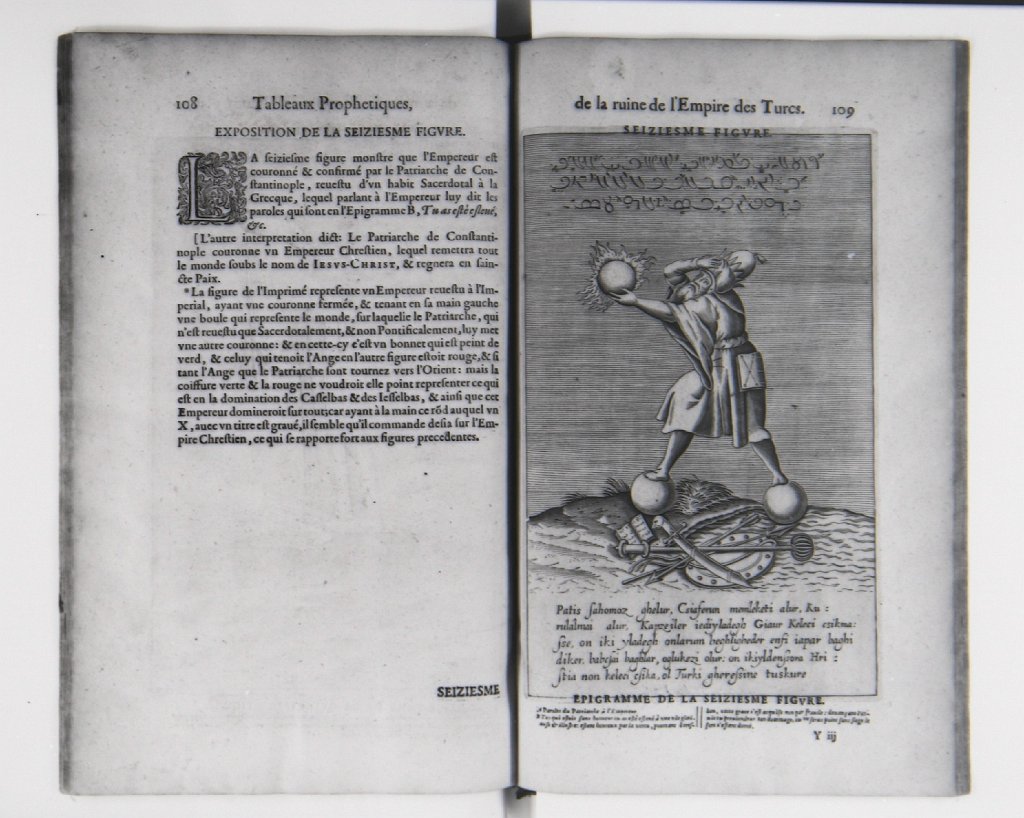 108 Tableaux Prophetiques,
EXPOSITION DE LA SEIZIESME FIGVRE.
LA seiziesme figure monstre que l'Empereur est
couronné & confirmé par le Patriarche de Con-
stantinople, reuestu d'vn habit Sacerdotal à la
Grecque, lequel parlant à l'Empereur luy dit les
paroles qui sont en l'Epigramme B, Tu as esté esleué,
&c.
[L'autre interpretation dict: Le Patriarche de Constanti-
nople couronne vn Empereur Chrestien, lequel remettra tout
le monde soubs le nom de IESVS-CHRIST, & regnera en sain-
cte Paix.
*La figure de l'Imprimé represente vn Empereur reuestu à l'Im-
perial, ayant vne couronne fermée, & tenant en sa main gauche
vne boule qui represente le monde, sur laquelle le Patriarche, qui
n'est reuestu que Sacerdotalement, & non Pontificalement, luy met
vne autre couronne: & en cette-cy c'est vn bonnet qui est peint de
verd, & celuy qui tenoit l'Ange en l'autre figure estoit rouge, & si
tant l'Ange que le Patriarche sont tournez vers l'Orient: mais la
coiffure verte & la rouge ne voudroit elle point representer ce qui
est en la domination des Casselbas & des Iesselbas, & ainsi que cet
Empereur domineroit sur tout; car ayant à la main ce rõd auquel vn
X, auec vn titre est graué, il semble qu'il commande desia sur l'Em-
pire Chrestien, ce qui se rapporte fort aux figures precedentes.
SEIZIESME
de la ruine de l'Empire des Turcs. 109
SEIZIESME FIGVRE
Patis sahomoz ghelur, Csiaferun memleketi alur, Ku:
rulalmai alur, Kapzeiler iediyladegh Giaur Keleci csikma:
sse, on iki yladegh onlarum beghligheder enfi iapar baghi
diker, bahcsai baghlar, oglukezi olur: on ikiyldenssora Hri:
stia non keleci csika, ol Turki gheressine tuskure
EPIGRAMME DE LA SEIZIESME FIGVRE.
A Paroles du Patriarche à l'Empereur
Y iij